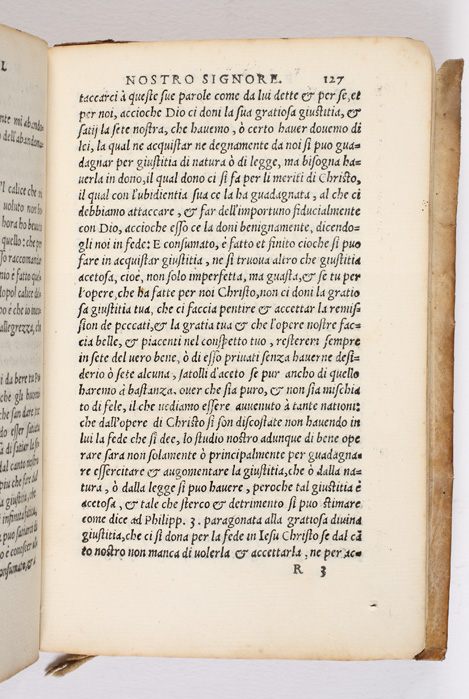 L
nte mi abando
dell'abandona
'l calice che tu
uoluto non fo
hora ho beuuto
quello: che per
sò raccomando
è fatto quel
dopol calice del
è che io mo
allegrezza, che
i da bere tu pa
che gli haueua
che san dare, tu
do esser satiato
dal canto nostro
piu che far dal
a giustitia, che
o è conoscer che
onsumato, & a
NOSTRO SIGNORE. 127
taccarci à queste sue parole come da lui dette & per se, et
per noi, accioche Dio ci doni la sua gratiosa giustitia, &
satij la sete nostra, che hauemo, ò certo hauer douemo di
lei, la qual ne acquistar ne degnamente da noi si puo gua-
dagnar per giustitia di natura ò di legge, ma bisogna ha-
uerla in dono, il qual dono ci si fa per li meriti di Christo,
il qual con l'ubidientia sua ce la ha guadagnata, al che ci
debbiamo attaccare, & far dell'importuno fiducialmente
con Dio, accioche esso ce la doni benignamente, dicendo-
gli noi in fede: E consumato, è fatto et finito cioche si puo
fare in acquistar giustitia, ne si truoua altro che giustitia
acetosa, cioè, non solo imperfetta, ma guasta, & se tu per
l'opere, che ha fatte per noi Christo, non ci doni la gratio
sa giustitia tua, che ci faccia pentire & accettar la remis-
sion de peccati, & la gratia tua & che l'opere nostre fac-
cia belle, & piacenti nel conspetto tuo, resterem sempre
in sete del uero bene, ò di esso priuati senza hauerne desi-
derio ò sete alcuna, satolli d'aceto se pur anchо di quello
haremo à bastanza, ouer che sia puro, & non sia mischia
to di fele, il che uediamo essere auuenuto à tante nationi:
che dall'opere di Christo si son discostate non hauendo in
lui la fede che si dee, lo studio nostro adunque di bene ope
rare sara non solamente ò principalmente per guadagna-
re essercitare & augomentare la giustitia, che ò dalla na-
tura, ò dalla legge si puo hauere, peroche tal giustitia è
acetosa, & tale che sterco & detrimento si puo stimare
come dice ad Philipp. 3. paragonata alla gratiosa diuina
giustitia, che ci si dona per la fede in Iesu Christo se dal cã
to nostro non manca di uolerla & accettarla, ne per ac-
R 3